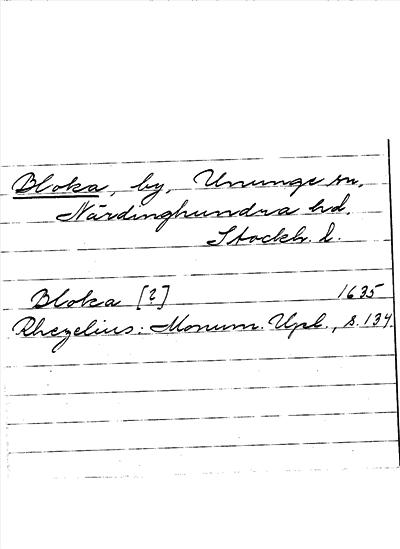 Bloka, by, Ununge sn,
Närdinghundra hd.
Stockh. l.
Bloka [?] 1635
Rhezelius: Monum. Upl., s. 134.